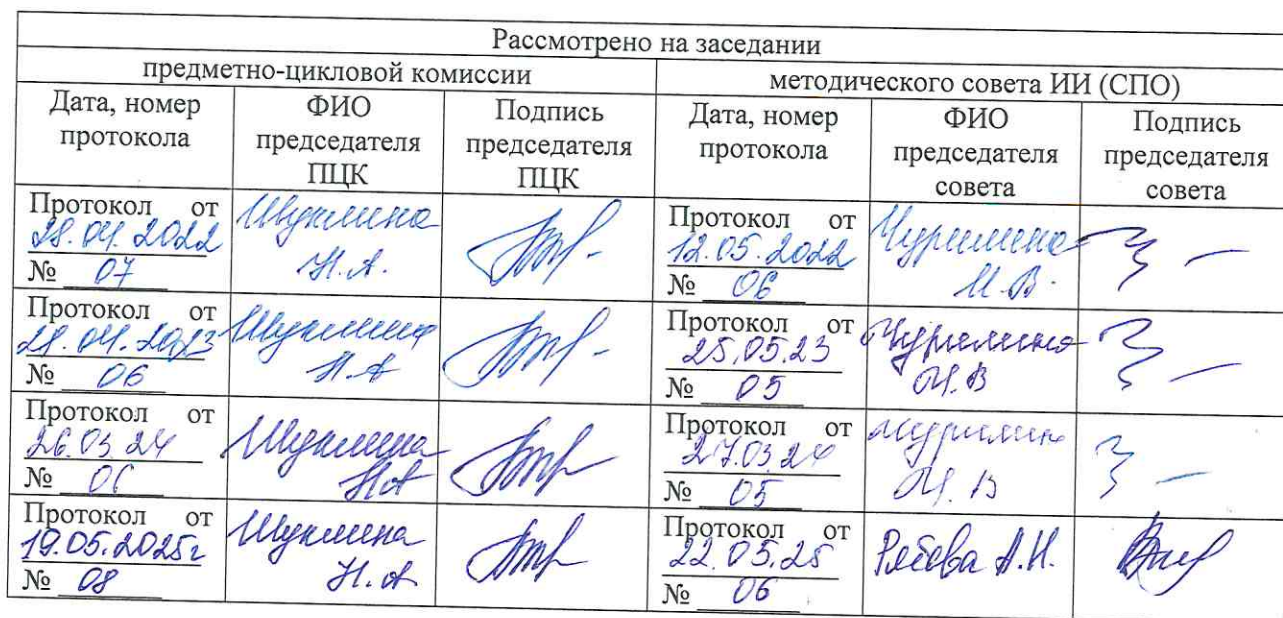 Рассмотрено на заседании
предметно-цикловой комиссии
методического совета ИИ (СПО)
Дата, номер
протокола
ФИО
председателя
ПЦК
Подпись
председателя
ПЦК
Дата, номер
протокола
ФИО
председателя
совета
Подпись
председателя
совета
Протокол от
28.04.2022
№ 07
Шуклина
Н.А.
Протокол от
12.05.2022
№ 06
Чурилина
И.В.
Протокол от
2023
№ 06
Шуклина
Н.А
Протокол от
25.05.23
№ 05
Чурилина
И.В
Протокол от
26.03.24
№ 06
Шуклина
НА
Протокол от
27.03.24
№ 05
И.В
Протокол от
19.05.2025г
№ 08
Шуклина
Н.А
Протокол от
22.05.25
№ 06
А.Н.